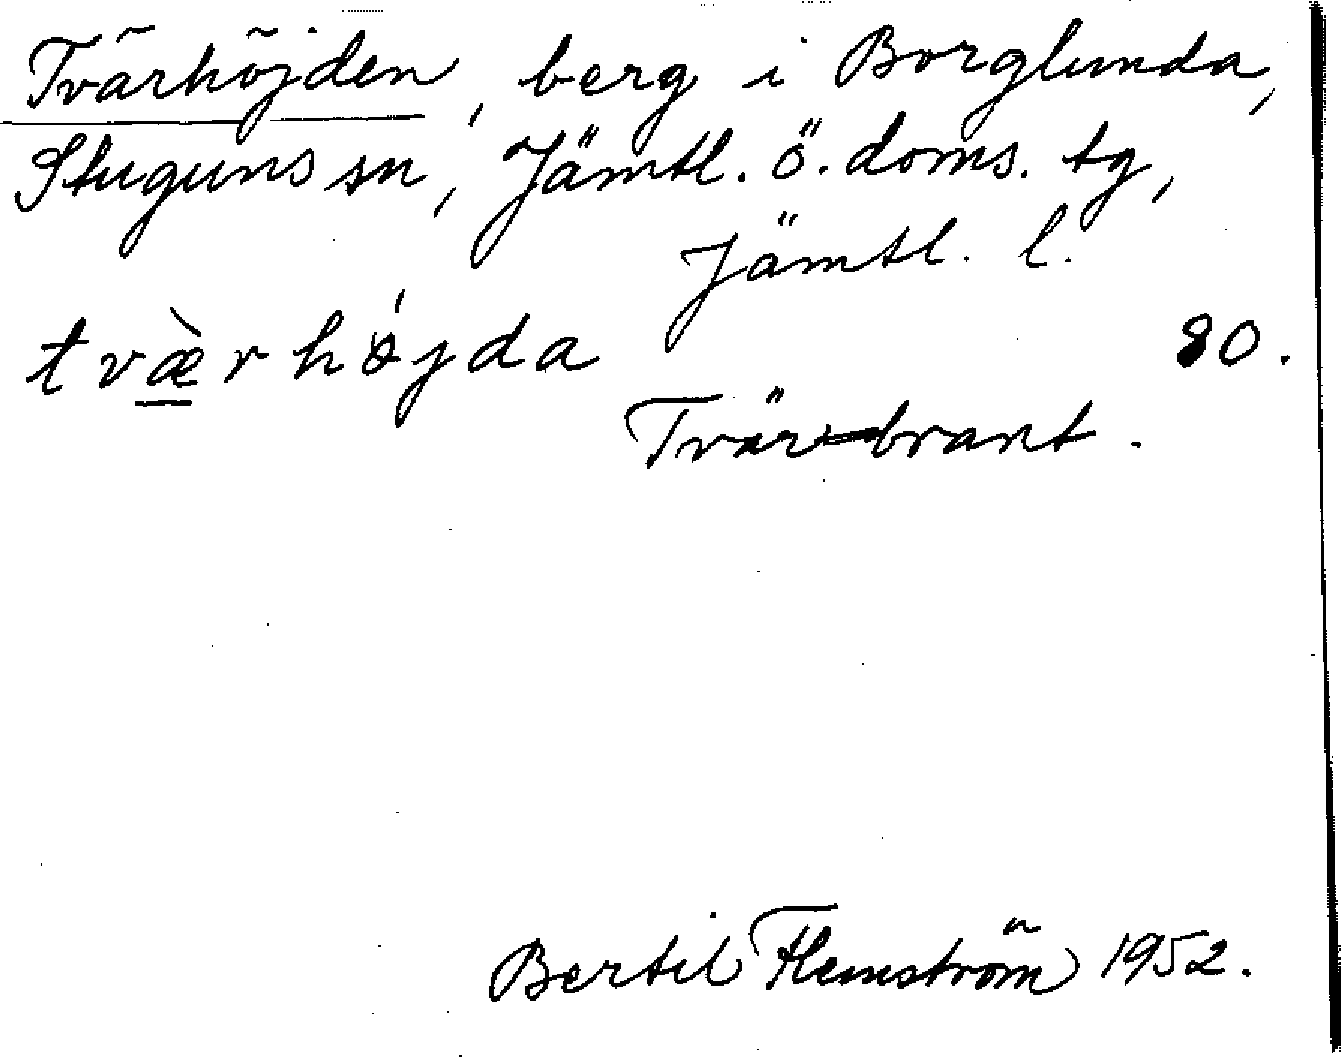 Tvärhöjden, berg i Borglunda,
Stuguns sn, Jämtl. ö. doms. tg,
Jämtl. l.
tvæ̀rhǿjda 80.
Tvär-brant.
Bertil Flemström 1952.